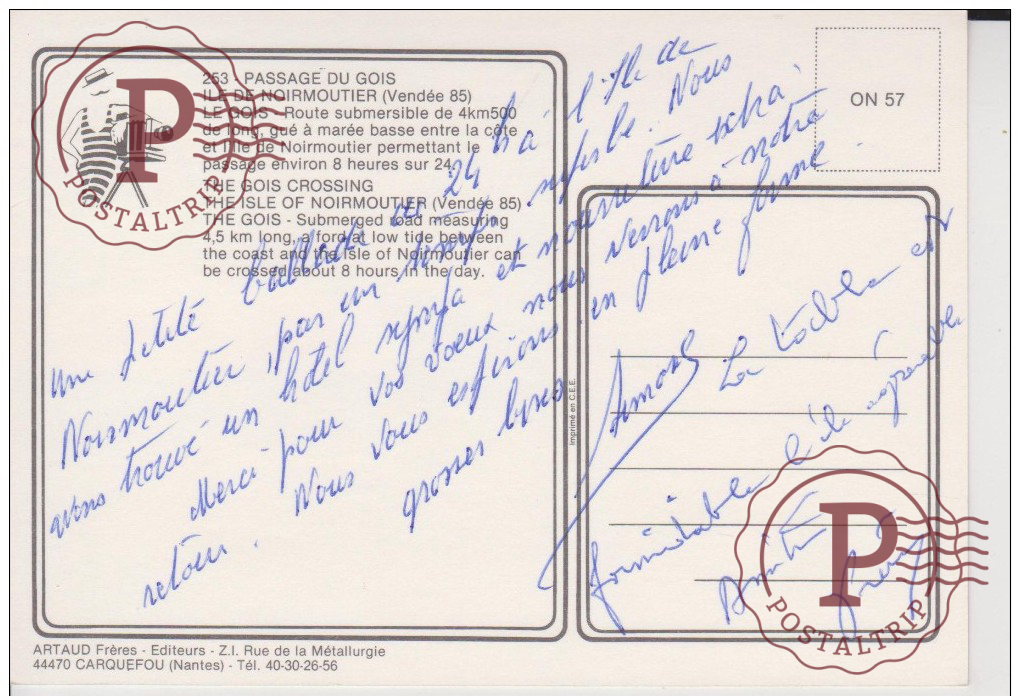 253 - PASSAGE DU GOIS
ILE DE NOIRMOUTIER (Vendée 85)
LE GOIS - Route submersible de 4km500
de long, gué à marée basse entre la côte
et l'Ile de Noirmoutier permettant le
passage environ 8 heures sur 24.
THE GOIS CROSSING
THE ISLE OF NOIRMOUTIER (Vendée 85)
THE GOIS - Submerged road measuring
4,5 km long, a ford at low tide between
the coast and the Isle of Noirmoutier can
be crossed about 8 hours in the day.
ON 57
une petite ballade de 24 h à l'Ile de
Noirmoutier, par un temps superbe. Nous
avons trouvé un hotel sympa et nourriture extra.
Merci pour vos voeux nous venons à notre
retour. Nous vous espérons en pleine forme.
grosses bises
Simone
La table est
formidable l'île agréable
Amitié
Imprimé en C.E.E.
ARTAUD Frères - Editeurs - Z.I. Rue de la Métallurgie
44470 CARQUEFOU (Nantes) - Tél. 40-30-26-56
P
POSTALTRIP
P
POSTALTRIP